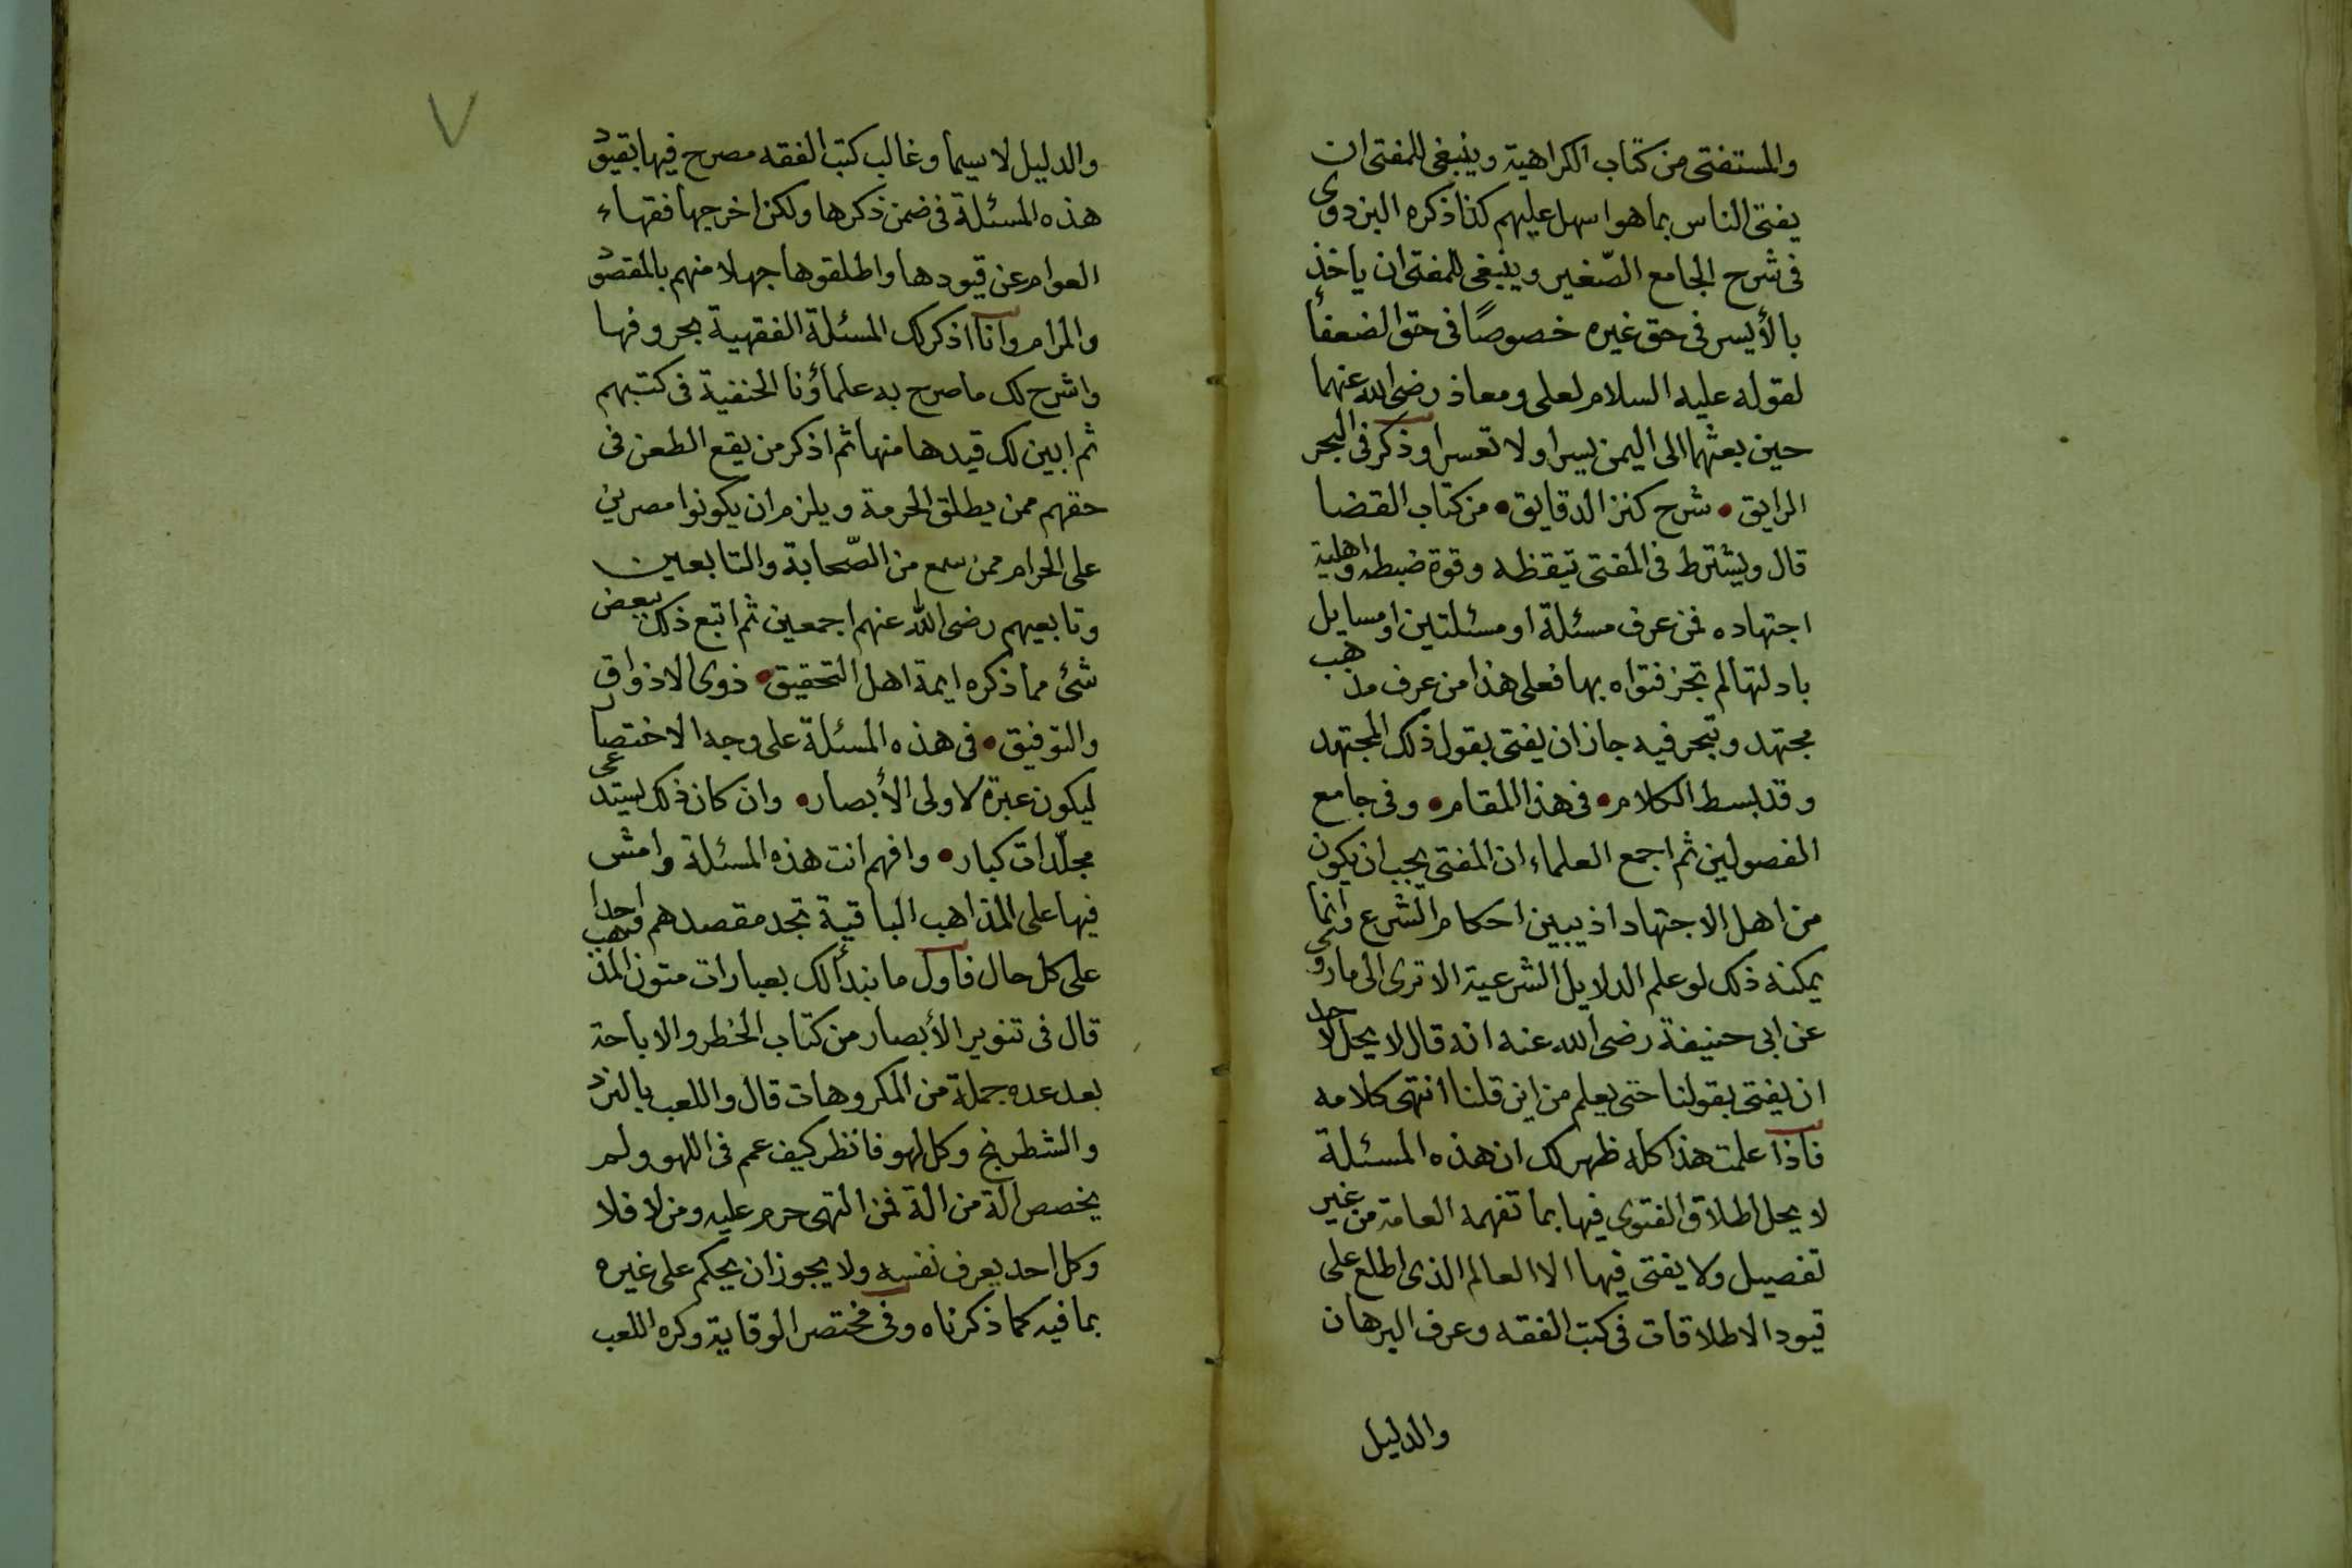 والمستفتى من كتاب الكراهية وينبغى للمفتى ان
يفتى الناس بما هو اسهل عليهم كذا ذكره البزدوى
فى شرح الجامع الصّغير وينبغى للمفتى ان ياخذ
بالأيسر فى حق غيره خصوصًا فى حق الضعفأ
لقوله عليه السلام لعلى ومعاذ رضى الله عنهما
حين بعثهما الى اليمن يسرا ولا تعسرا وذكر فى البحر
الرايق • شرح كنز الدقايق • من كتاب القضا
قال ويشترط فى المفتى تيقظه وقوة ضبطه واهلية
اجتهاده فمن عرف مسئلة او مسئلتين او مسايل
بادلتها لم تجز فتواه بها فعلى هذا من عرف مذهب
مجتهد وتبحر فيه جاز ان يفتى بقول ذلك المجتهد
وقد بسط الكلام • فى هذا المقام • وفى جامع
الفصولين ثم اجمع العلماء ان المفتى يجب ان يكون
من اهل الاجتهاد اذ يبين احكام الشرع وانما
يمكنه ذلك لو علم الدلايل الشرعية الا ترى الى ما روى
عن ابى حنيفة رضى الله عنه انه قال لا يحل لاحد
ان يفتى بقولنا حتى يعلم من اين قلنا انتهى كلامه
فاذا علمت هذا كله ظهر لك ان هذه المسئلة
لا يحل اطلاق الفتوى فيها بما تفهمه العامة من غير
تفصيل ولا يفتى فيها الا العالم الذى اطلع على
قيود الاطلاقات فى كتب الفقه وعرف البرهان
والدليل
٧
والدليل لا سيما وغالب كتب الفقه مصرح فيها بقيود
هذه المسئلة فى ضمن ذكرها ولكن اخرجها فقهاء
العوام عن قيودها واطلقوها جهلا منهم بالمقصود
والمرام وانا اذكر لك المسئلة الفقهية بحروفها
واشرح لك ما صرح به علماؤنا الحنفية فى كتبهم
ثم ابين لك قيدها منها ثم اذكر من يقع الطعن فى
حقهم ممن يطلق الحرمة ويلزم ان يكونوا مصرين
على الحرام ممن سمع من الصّحابة والتابعين
وتابعيهم رضى الله عنهم اجمعين ثم اتبع ذلك ببعض
شئ مما ذكره ايمة اهل التحقيق • ذوى الاذواق
والتوفيق • فى هذه المسئلة على وجه الاختصار
ليكون عبرة لاولى الأبصار • وان كان ذلك يستدعى
مجلّدات كبار • وافهم انت هذه المسئلة وامش
فيها على المذاهب الباقية تجد مقصدهم واحدا
على كل حال فاول ما نبدأ لك بعبارات متون المذهب
قال فى تنوير الأبصار من كتاب الحظر والاباحة
بعد عده جملة من المكروهات قال واللعب بالنرد
والشطرنج وكل لهو فانظر كيف عمم فى اللهو ولم
يخصص الة من الة فمن التهى حرم عليه ومن لا فلا
وكل احد يعرف نفسه ولا يجوز ان يحكم على غيره
بما فيه كما ذكرناه وفى مختصر الوقاية وكره اللعب